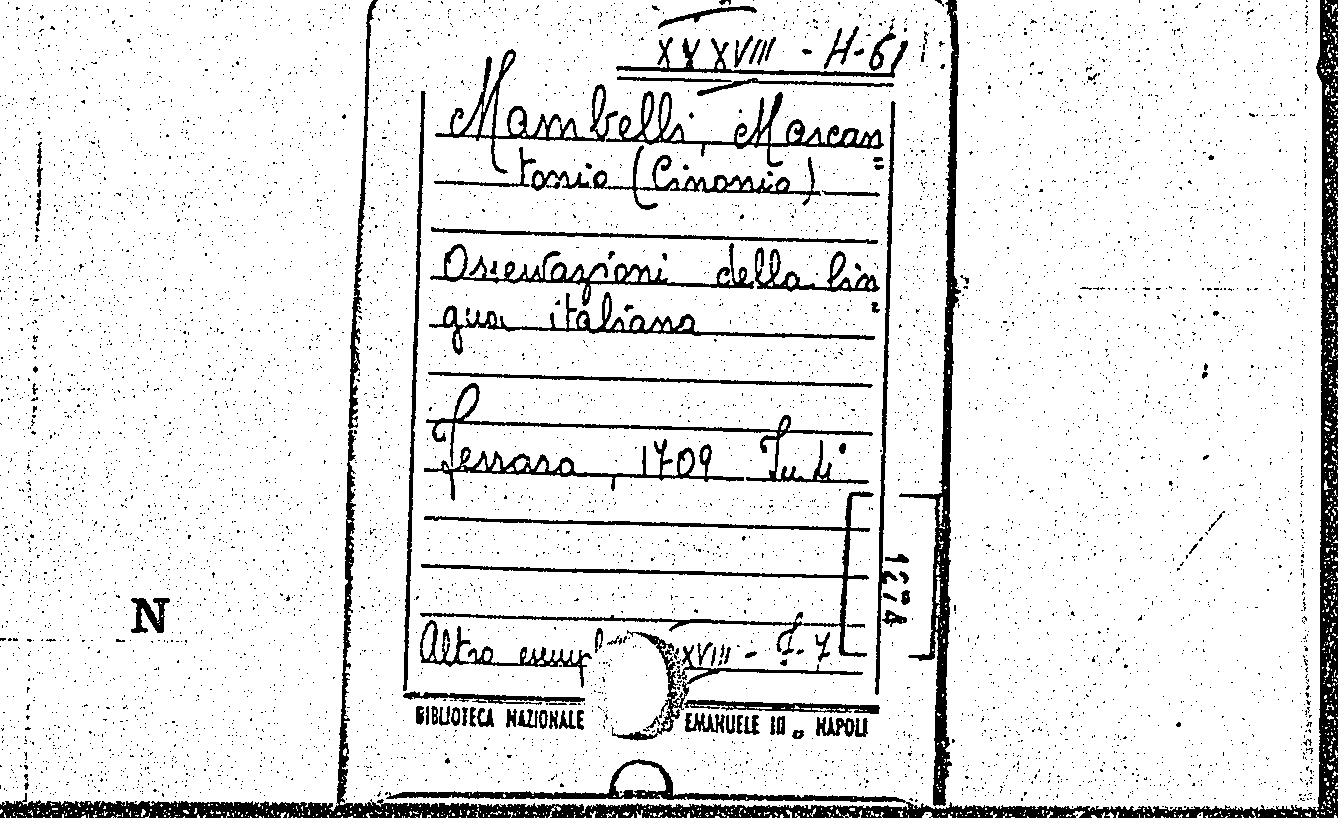 XXXVIII - H-61
Mambelli, Marcan=
tonio (Cinonio)
Osservazioni della lin=
gua italiana
Ferrara, 1709
N
Altro XVIII -
BIBLIOTECA NAZIONALE EMANUELE III NAPOLI